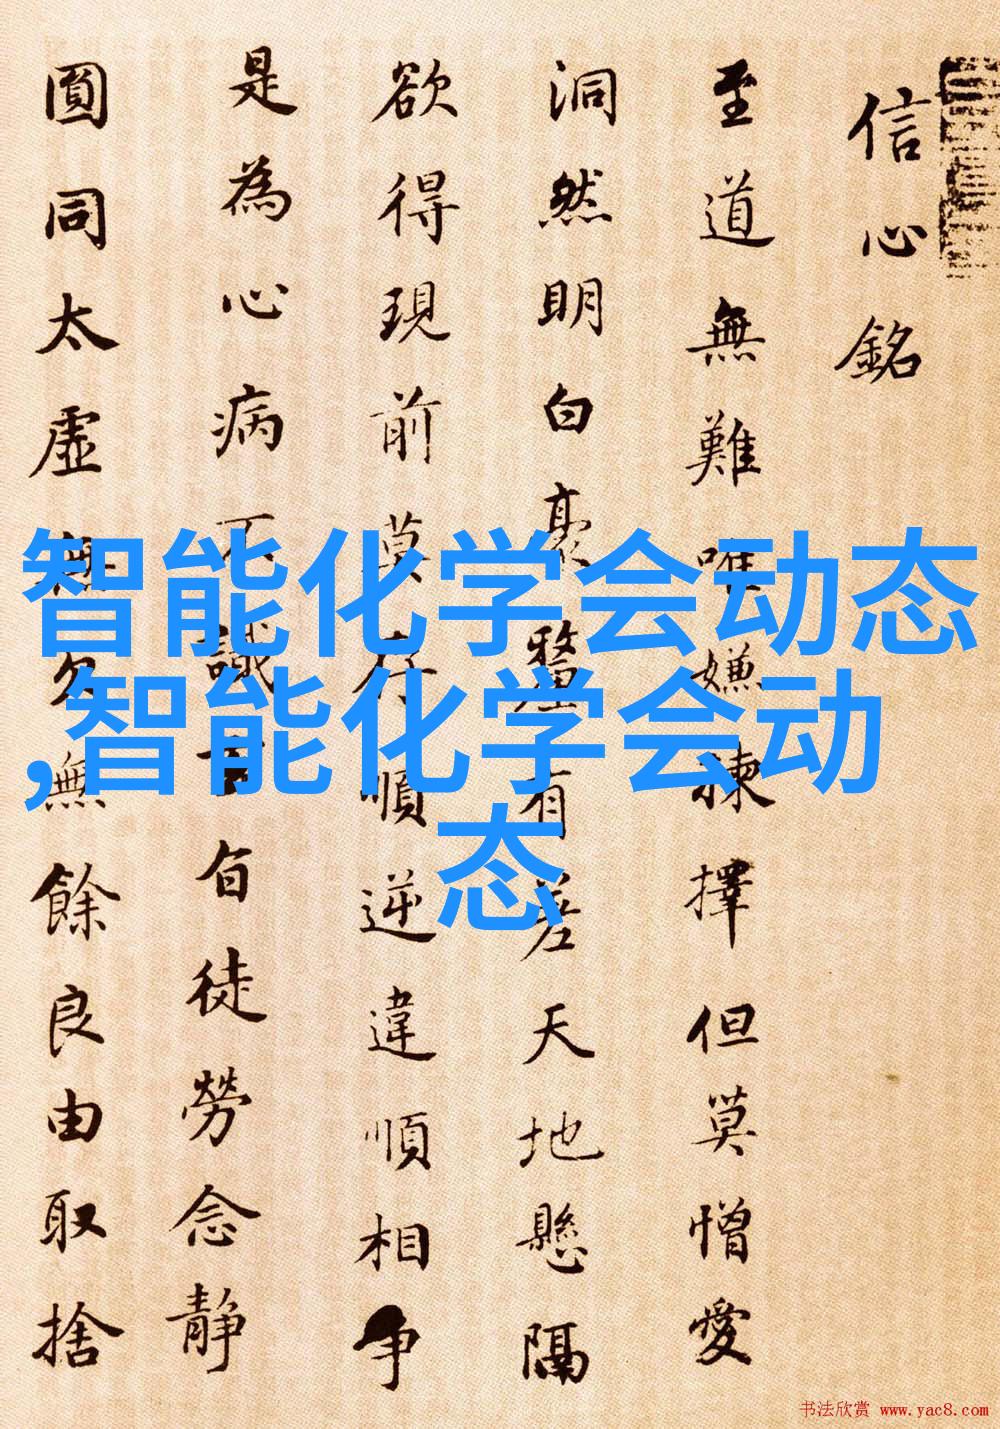 信心銘
至道無難唯嫌揀擇但莫憎愛
洞然明白豪釐有差天地懸隔
欲得現前莫存順逆違順相争
是為心病不識玄旨徒勞念静
圓同太虛無欠無餘良由取捨
智能化学会动态
,智能化学会动
态
书法欣赏 www.yac8.com